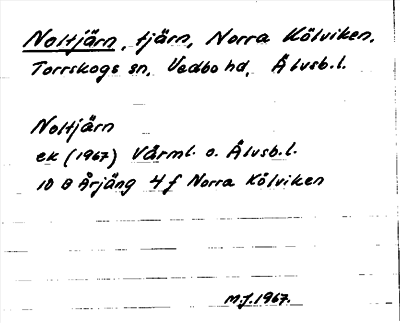 Noltjärn, tjärn, Norra Kölviken.
Torrskogs sn, Vedbo hd, Älvsb.l.
Noltjärn
ek (1967) Värml. o. Älvsb.l.
10 B Årjäng 4 f Norra Kölviken
M.J. 1967.